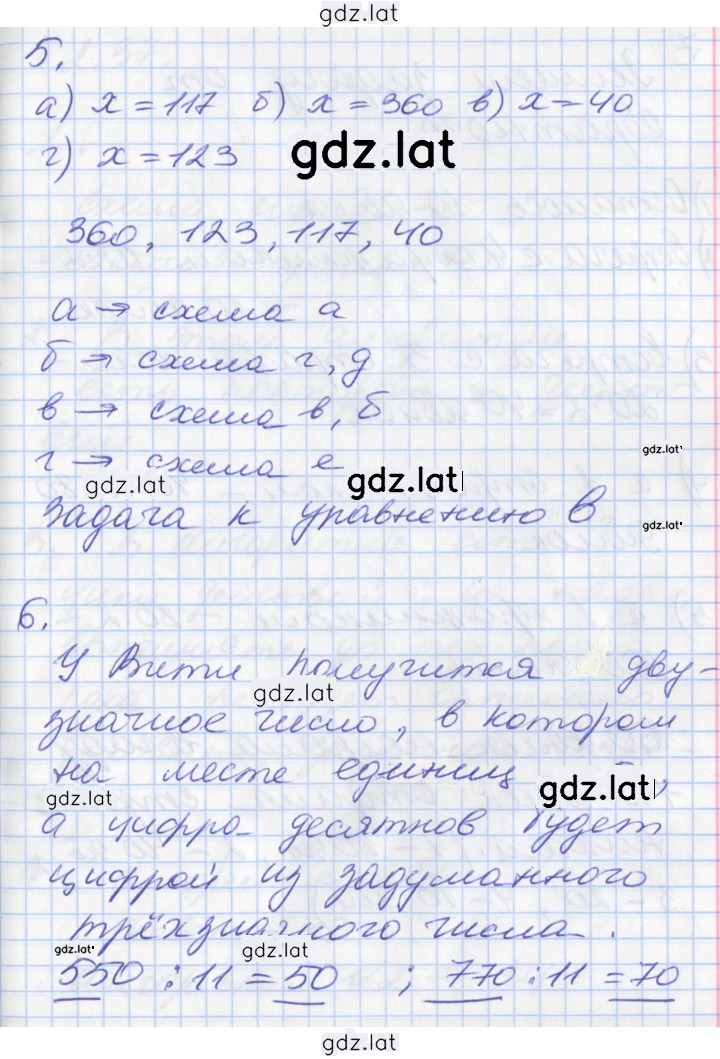 gdz.lat
5.
а) х = 117 б) х = 360 в) х = 40
г) х = 123
gdz.lat
360, 123, 117, 40
а → схема а
б → схема г, д
в → схема в, б
gdz.lat
г → схема е
gdz.lat
gdz.lat
задача к уравнению в
gdz.lat
6.
У Вити получится дву-
gdz.lat
значное число, в котором
на месте единиц
gdz.lat
gdz.lat
а цифра десятков будет
цифрой из задуманного
трёхзначного числа.
gdz.lat
gdz.lat
550 : 11 = 50 ; 770 : 11 = 70
gdz.lat